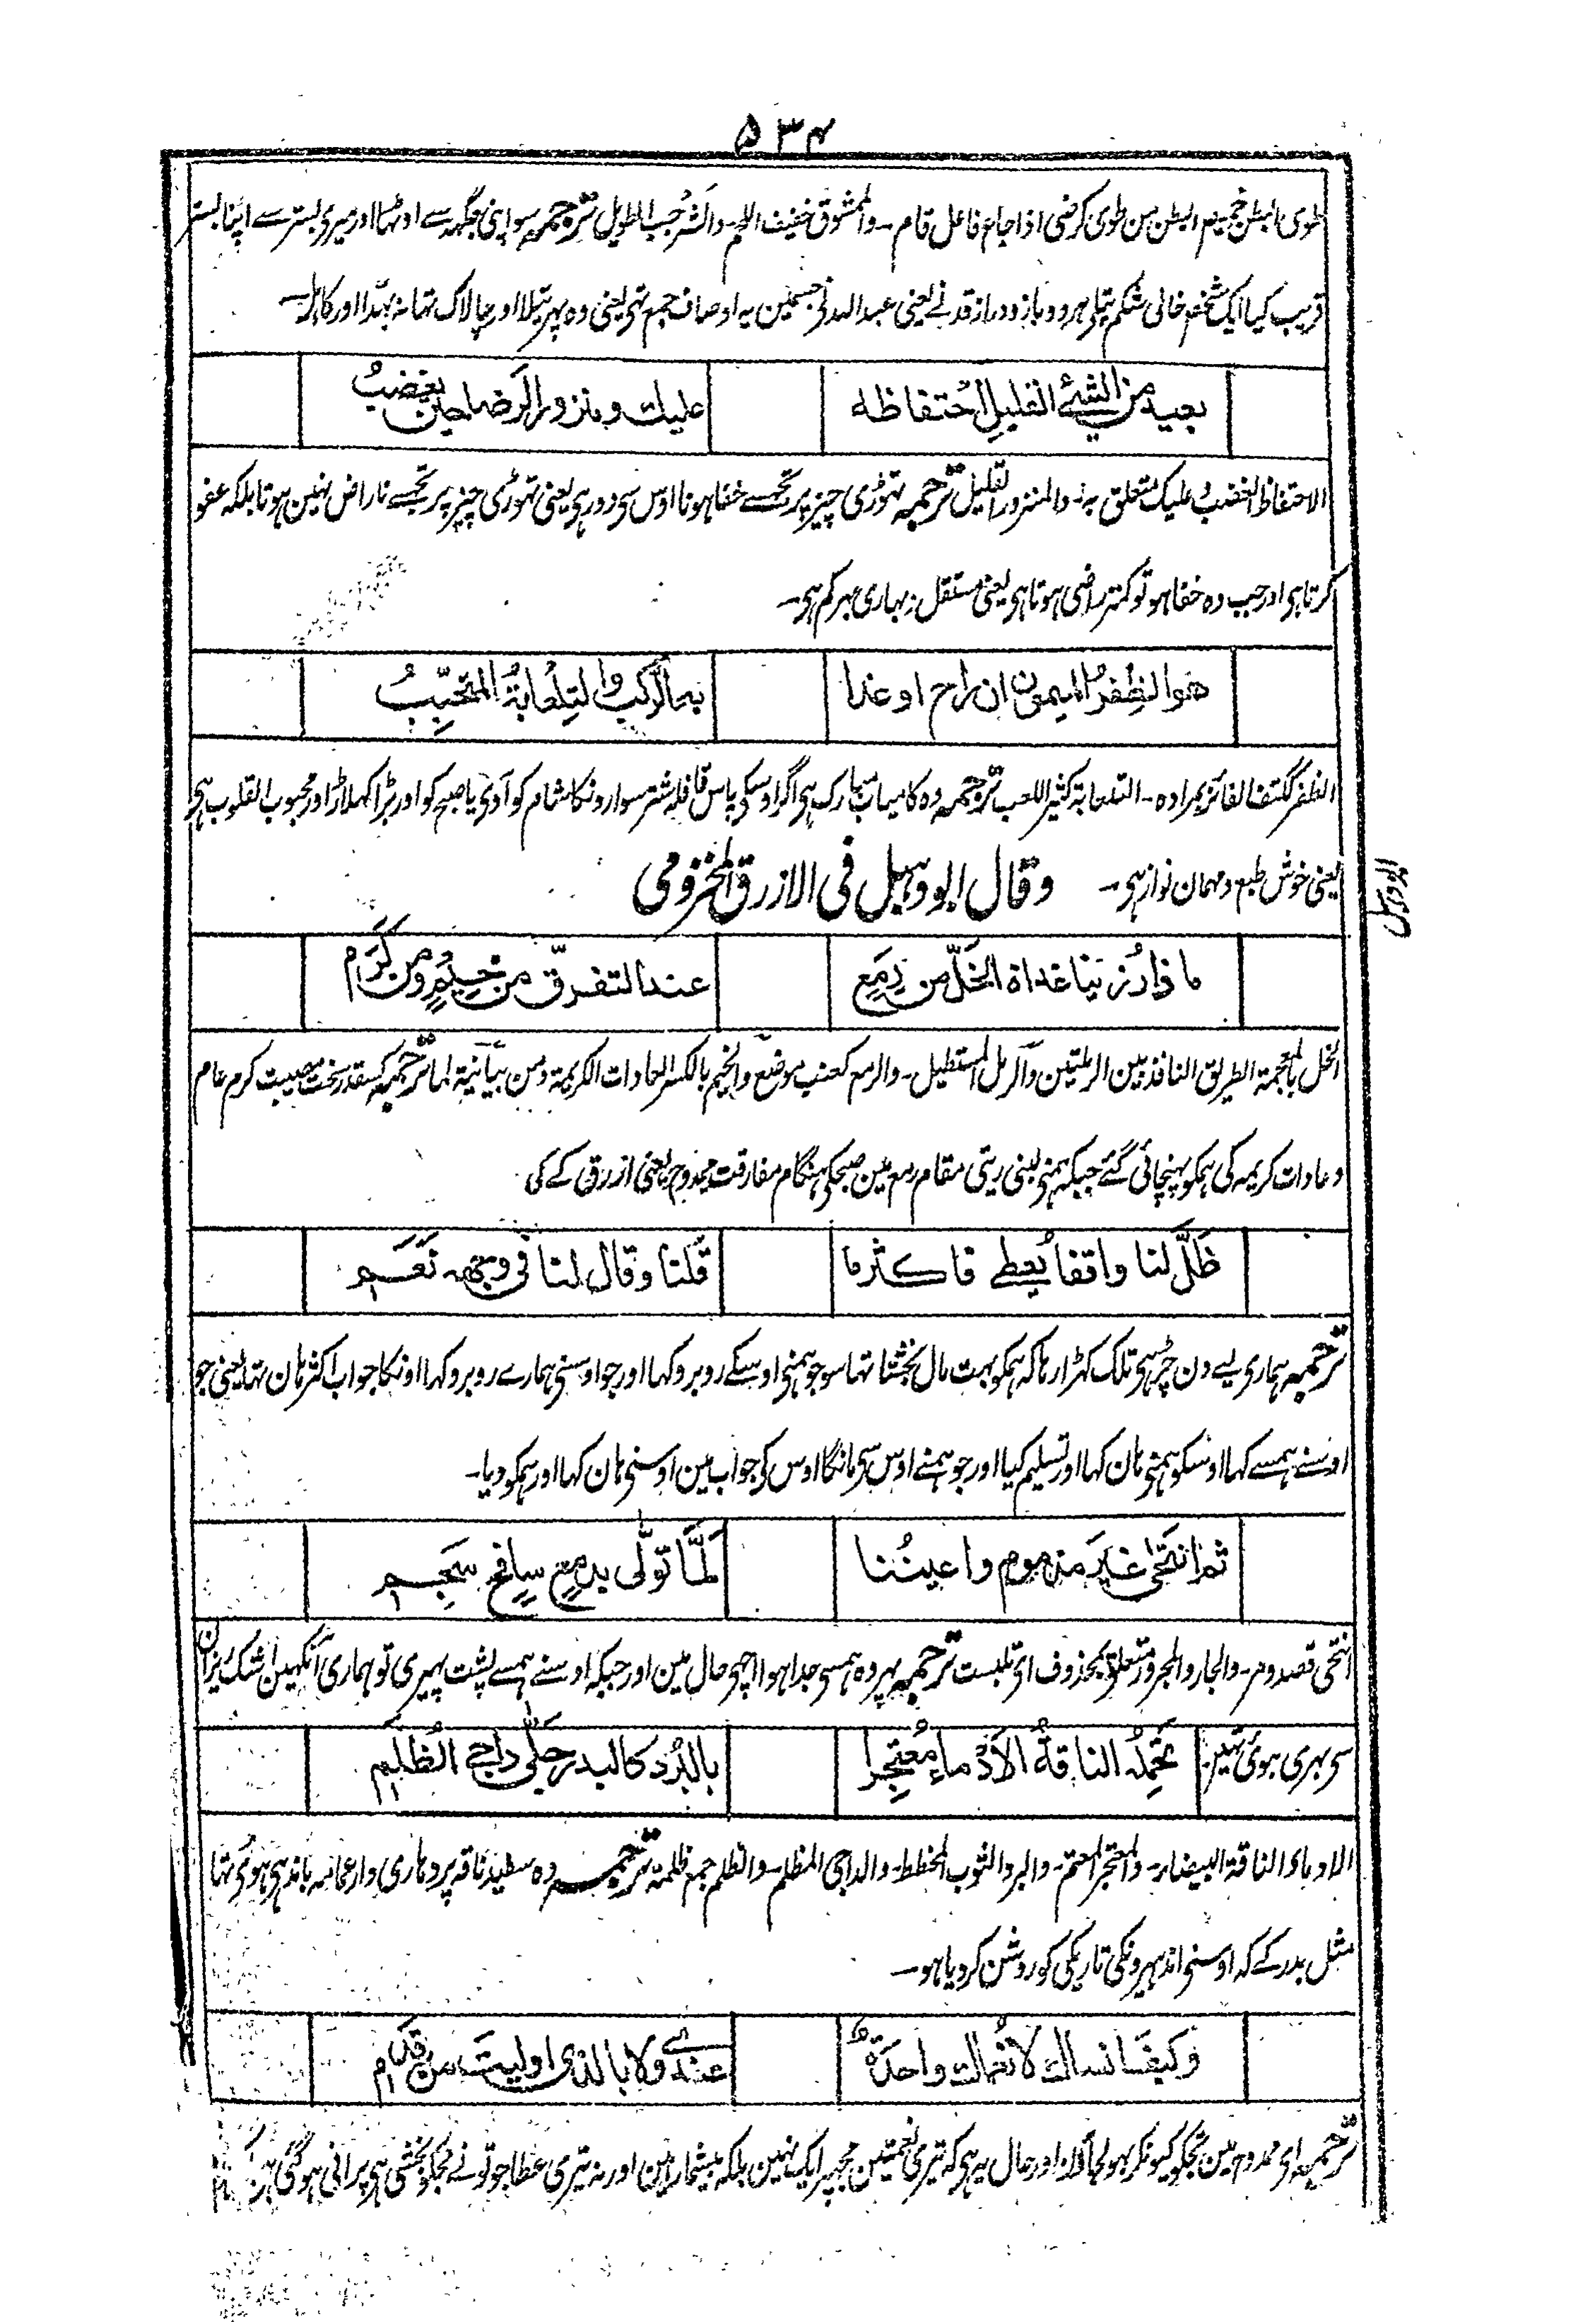 ۵۳۴
طوی البطن خمیص البطن من طوی کرضی اذا جاع فاعل قام۔ والممشوق خفیف اللحم۔ والشرجب الطویل ترجمہ سو اپنی جگہہ سے اوٹھا اور میری بستر سے اپنا بستر
قریب کیا ایک شخص خالی شکم پتلی ہر دو بازو دراز قد نے یعنی عبداللہ نے جسمین یہ اوصاف جمع تہی یعنی وہ پھرتیلا اور چالاک تہا نہ بھدا اور کاہل۔
بعید من الشیئ القلیل احتفاظه
علیك ومنزور الرضا حین یغضبُ
الاحتفاظ الغضب علیک متعلق بہ۔ والمنزور القلیل ترجمہ تھوڑی چیز پر تجھسے خفا ہونا اوس سی دور ہی یعنی تھوڑی چیز پر تجھسے ناراض نہین ہوتا بلکہ عفو
کرتا ہی اور جب وہ خفا ہو تو کمتر راضی ہوتا ہی یعنی مستقل ہی بہاری بہرکم ہی۔
هو الظفِرُ المیمون ان راح او غدا
به الرکب والتِلعابةُ المتحبِّبُ
الظفر ککتف الفائز بمرادہ۔ التلعابۃ کثیر اللعب ترجمہ وہ کامیاب مبارک ہی اگر اوسکی پاس قافلہ شتر سوارونکا شام کو آوی یا صبح کو اور بڑا کہلاڑ اور محبوب القلوب ہی
یعنی خوش طبع و مہمان نواز ہی۔ وقال ابو دہبل فی الازرق المخزومی
ابو دہبل
ما ذا رُزینا غداة الخَلّ من رِمَعٍ
عند التفرّق من خِیمٍ ومن کَرَم
الخل بالمعجمۃ الطریق النافذ بین الرملتین والرمل المستطیل۔ والرمع کعنب موضع والخیم بالکسر العادات الکریمۃ ومن بیانیۃ لما ترجمہ کسقدر سخت مصیبت کرم عام
و عادات کریمہ کی ہمکو پہنچائی گئے جبکہ ہمنی لبنی ریتی مقام رمع مین صبحکی ہنگام مفارقت ممدوح یعنی ازرق کے کی
ظَلَّ لنا واقفا یُعطی فاکثر ما
قُلنا وقال لنا فی وجهه نَعَم
ترجمہ ہماری لیے دن چڑہی تلک کہڑا رہا کہ ہمکو بہت مال بخشتا تہا سو جو ہمنی اوسکے روبرو کہا اور جو اوسنی ہمارے روبرو کہا اونکا جواب اکثر ہان تہا یعنی جو
اوسنے ہمسے کہا اوسکو ہمنی ہان کہا اور تسلیم کیا اور جو ہمنے اوس سی مانگا اوس کی جواب مین اوسنی ہان کہا اور ہمکو دیا۔
ثم انتحی غیرَ مذموم واعینُنا
لَمَّا تَولّٰی بدمعٍ سافحٍ سَجِم
انتحی قصد ومر۔ والجار والمجرور متعلق بمحذوف ای تلبست ترجمہ پہر وہ ہمسی جدا ہوا اچھی حال مین اور جبکہ اوسنے ہمسے پشت پہیری تو ہماری آنکہین اشک ریزان
سی بہری ہوئی تہین۔
تحمِلُه الناقةُ الاَدْماءُ مُعتجِرا
بالبُرد کالبدر جَلّٰی داجیَ الظُلَم
الادماء الناقۃ البیضاء۔ والمعتجر المعتم۔ والبرد الثوب المخطط۔ والداجی المظلم۔ والظلم جمع ظلمۃ ترجمہ وہ سفید ناقہ پر دہاری دار عمامہ باندہی ہوئی تہا
مثل بدر کے کہ اوسنی اندہیرونکی تاریکی کو روشن کر دیا ہو۔
وکیف انساك لا نُعماك واحدةٌ
عندی ولا بالذی اولیتَ من قِدَم
ترجمہ ای ممدوح مین تجکو کیونکر بہولجاؤن اور حال یہ ہی کہ تیری نعمتین مجہپر ایک نہین بلکہ بیشمار ہین اور نہ تیری عطا جو تونے مجکو بخشی ہی پرانی ہو گئی